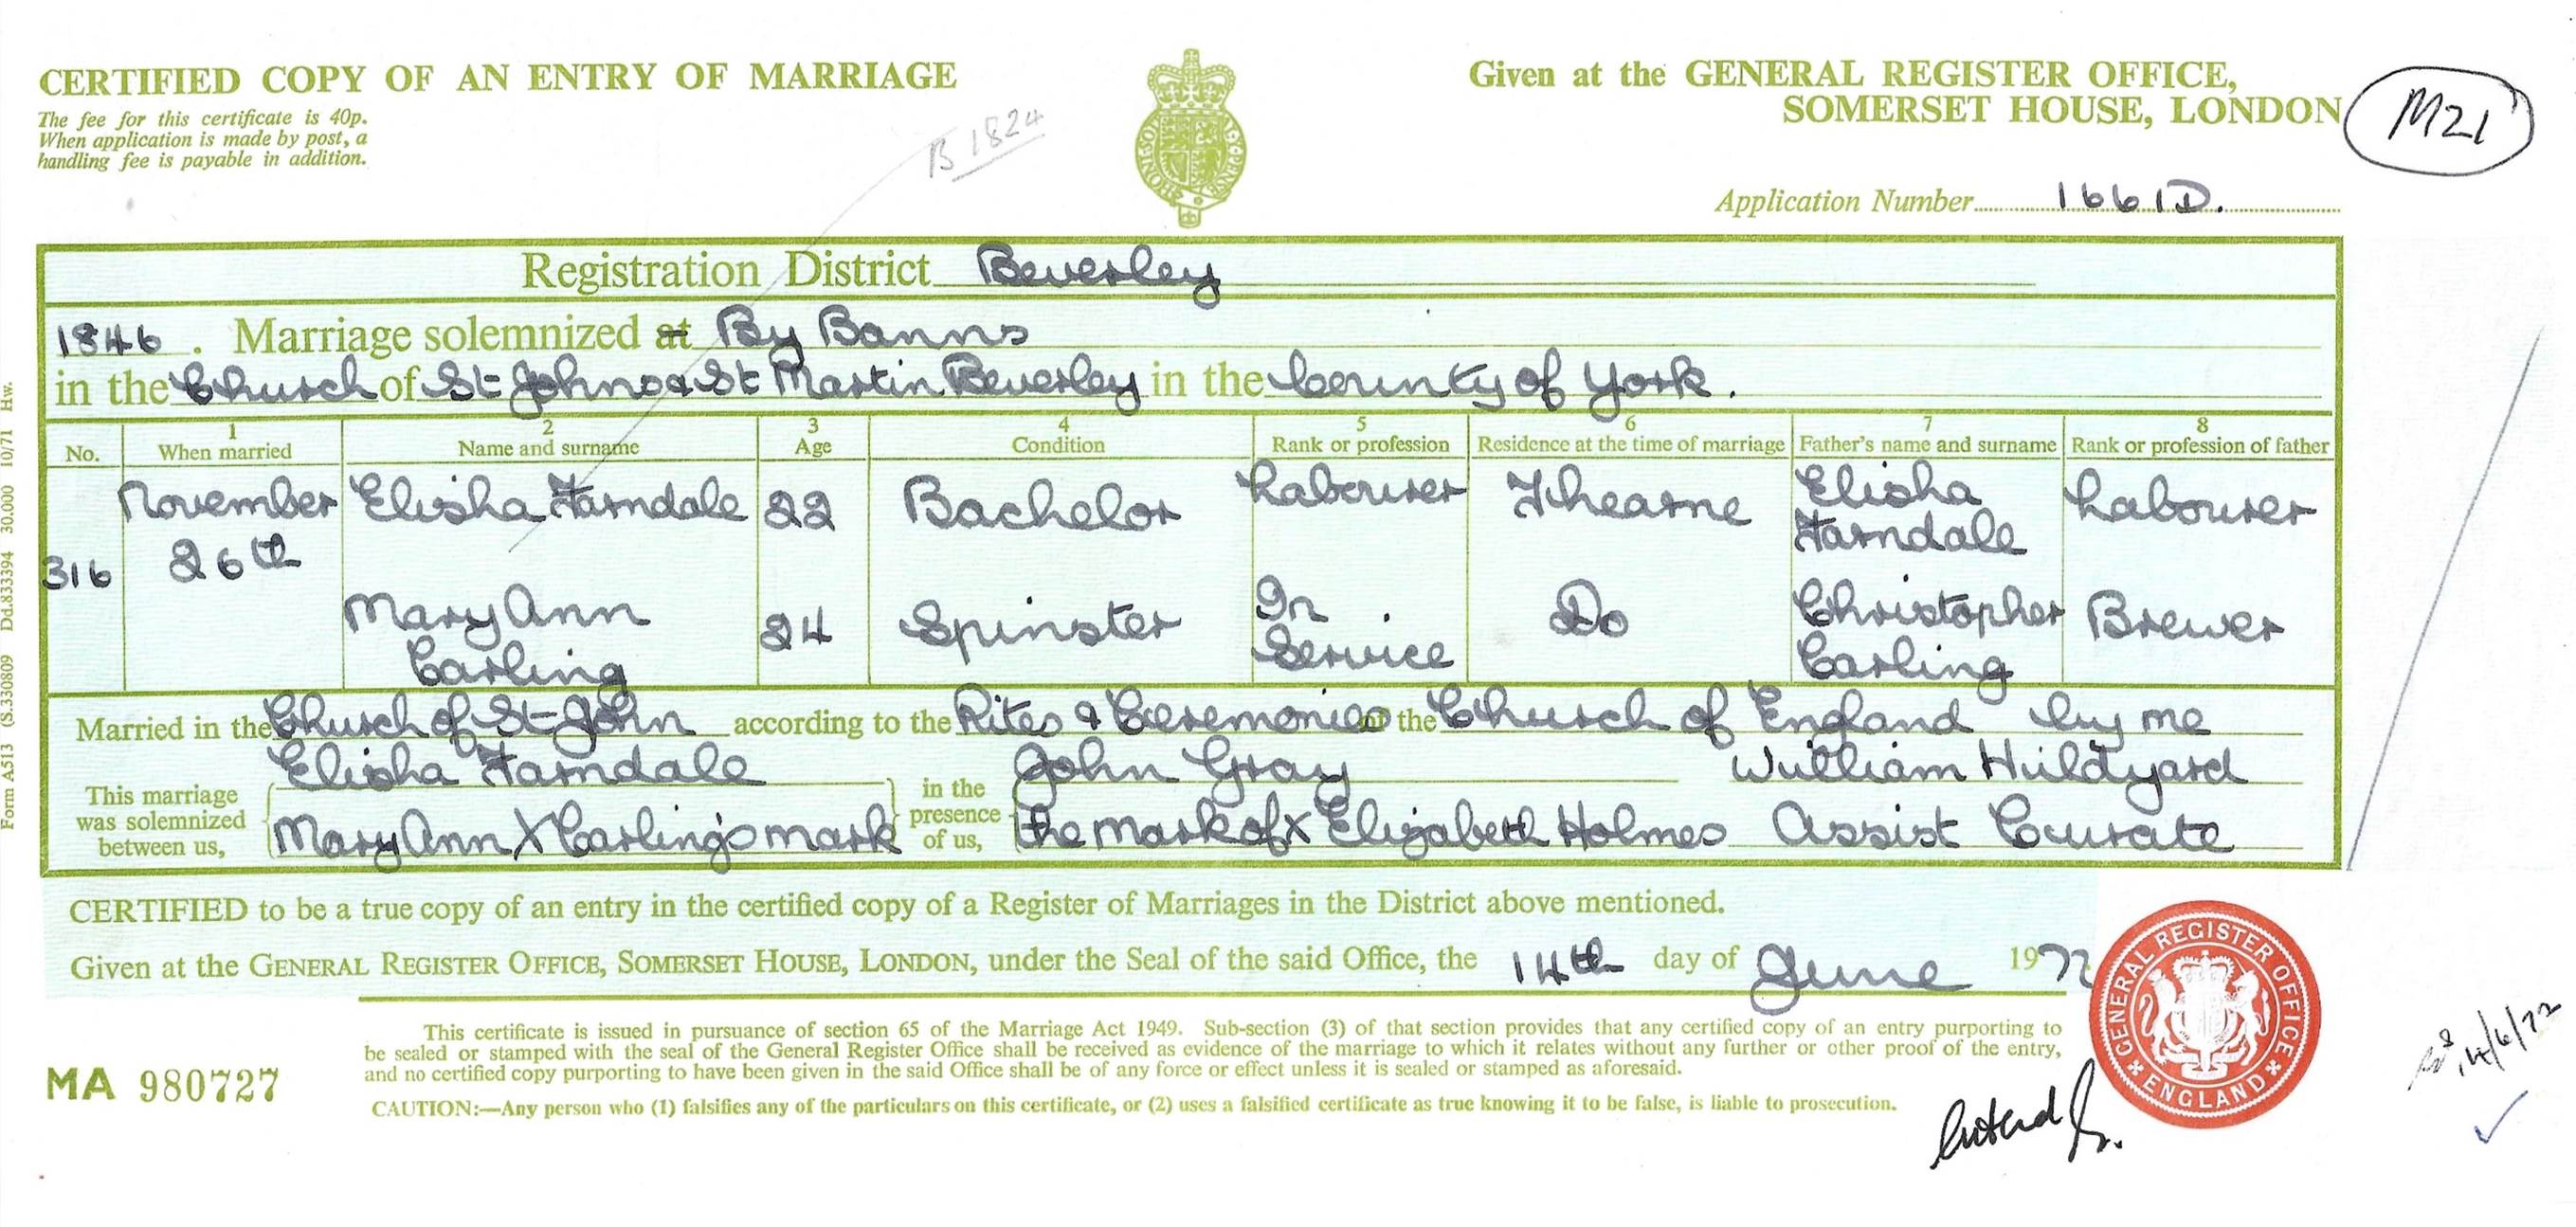 CERTIFIED COPY OF AN ENTRY OF MARRIAGE
The fee for this certificate is 40p.
When application is made by post, a
handling fee is payable in addition.
B 1824
Given at the GENERAL REGISTER OFFICE,
SOMERSET HOUSE, LONDON
M21
Application Number 1661D.
Registration District Beverley
1846. Marriage solemnized at By Banns
in the Church of St Johns & St Martin Beverley in the County of York.
No. 1 When married 2 Name and surname 3 Age 4 Condition 5 Rank or profession 6 Residence at the time of marriage 7 Father's name and surname 8 Rank or profession of father
316 November 26th Elisha Farndale 22 Bachelor Labourer Thearne Elisha Farndale Labourer
Mary Ann Carling 24 Spinster In Service Do Christopher Carling Brewer
Married in the Church of St John according to the Rites & Ceremonies of the Church of England by me
This marriage was solemnized between us,
Elisha Farndale
Mary Ann X Carling's mark
in the presence of us,
John Gray
the mark of x Elizabeth Holmes
William Hildyard
Assist Curate
CERTIFIED to be a true copy of an entry in the certified copy of a Register of Marriages in the District above mentioned.
Given at the GENERAL REGISTER OFFICE, SOMERSET HOUSE, LONDON, under the Seal of the said Office, the 14th day of June 1972
This certificate is issued in pursuance of section 65 of the Marriage Act 1949. Sub-section (3) of that section provides that any certified copy of an entry purporting to
be sealed or stamped with the seal of the General Register Office shall be received as evidence of the marriage to which it relates without any further or other proof of the entry,
and no certified copy purporting to have been given in the said Office shall be of any force or effect unless it is sealed or stamped as aforesaid.
CAUTION:—Any person who (1) falsifies any of the particulars on this certificate, or (2) uses a falsified certificate as true knowing it to be false, is liable to prosecution.
MA 980727
GENERAL REGISTER OFFICE
ENGLAND
14/6/72
Form A513 (S.330809 Dd.833394 30,000 10/71 Hw.